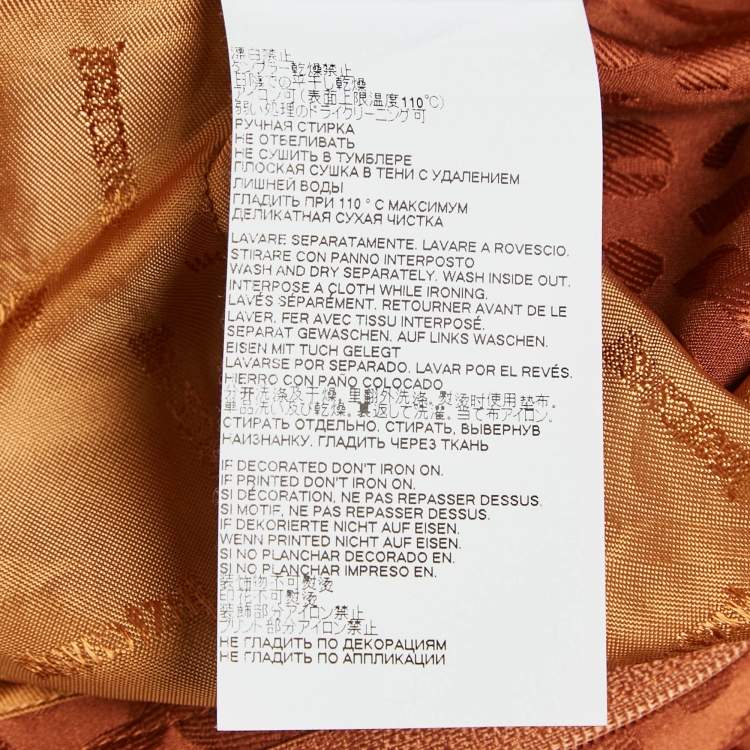 漂白禁止
タンブラー乾燥禁止
日陰での平干し乾燥
アイロン可(表面上限温度110℃)
弱い処理のドライクリーニング可
РУЧНАЯ СТИРКА
НЕ ОТБЕЛИВАТЬ
НЕ СУШИТЬ В ТУМБЛЕРЕ
ПЛОСКАЯ СУШКА В ТЕНИ С УДАЛЕНИЕМ
ЛИШНЕЙ ВОДЫ
ГЛАДИТЬ ПРИ 110 ° С МАКСИМУМ
ДЕЛИКАТНАЯ СУХАЯ ЧИСТКА
LAVARE SEPARATAMENTE. LAVARE A ROVESCIO.
STIRARE CON PANNO INTERPOSTO
WASH AND DRY SEPARATELY. WASH INSIDE OUT.
INTERPOSE A CLOTH WHILE IRONING.
LAVÉS SÉPARÉMENT. RETOURNER AVANT DE LE
LAVER. FER AVEC TISSU INTERPOSÉ.
SEPARAT GEWASCHEN. AUF LINKS WASCHEN.
EISEN MIT TUCH GELEGT
LAVARSE POR SEPARADO. LAVAR POR EL REVÉS.
HIERRO CON PAÑO COLOCADO
分开洗涤及干燥。里翻外洗涤。熨烫时使用垫布。
単品洗い及び乾燥。裏返して洗濯。当て布アイロン。
СТИРАТЬ ОТДЕЛЬНО. СТИРАТЬ, ВЫВЕРНУВ
НАИЗНАНКУ. ГЛАДИТЬ ЧЕРЕЗ ТКАНЬ
IF DECORATED DON'T IRON ON.
IF PRINTED DON'T IRON ON.
SI DÉCORATION, NE PAS REPASSER DESSUS.
SI MOTIF, NE PAS REPASSER DESSUS.
IF DEKORIERTE NICHT AUF EISEN.
WENN PRINTED NICHT AUF EISEN.
SI NO PLANCHAR DECORADO EN.
SI NO PLANCHAR IMPRESO EN.
装饰物不可熨烫
印花不可熨烫
装飾部分アイロン禁止
プリント部分アイロン禁止
НЕ ГЛАДИТЬ ПО ДЕКОРАЦИЯМ
НЕ ГЛАДИТЬ ПО АППЛИКАЦИИ